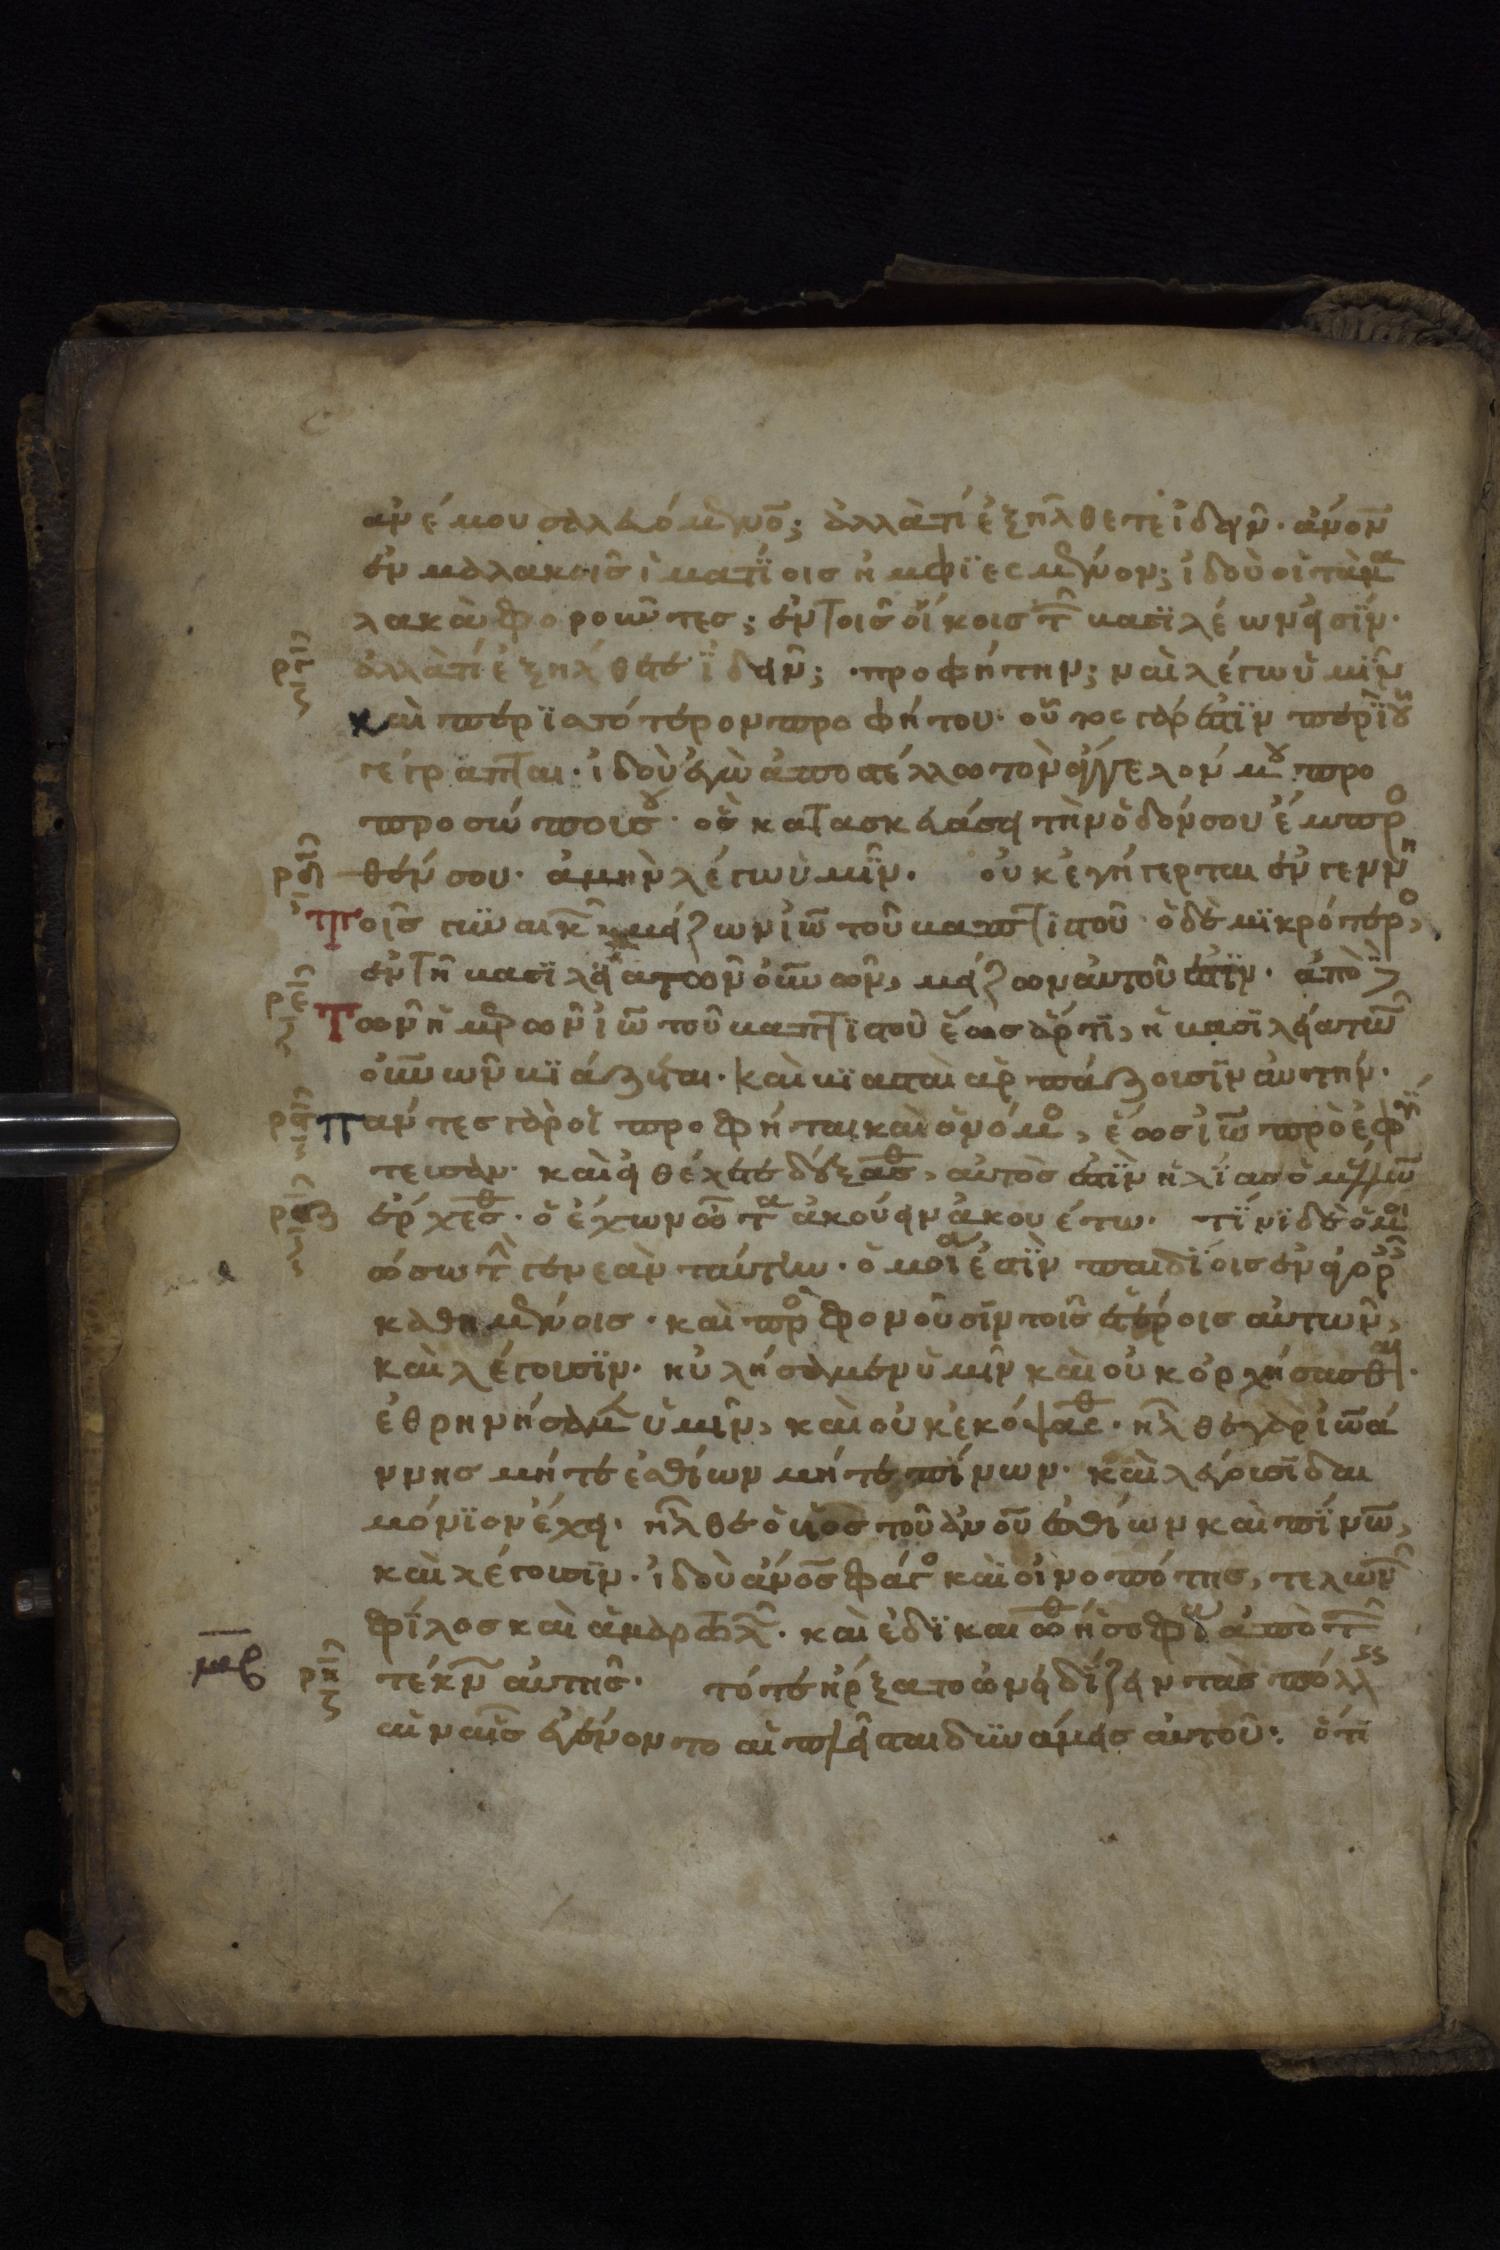 ανέμου σαλευόμενον; ἀλλὰ τί ἐξήλθετε ἰδεῖν· ἄνον
ἐν μαλακοῖς ἱματΐοις ἠμφϊεσμένον; ἰδοὺ οἱ τὰ μα
λακὰ φοροῦντες; ἐν τοῖς οἴκοις τῶν βασϊλέων εἰσΐν·
ρδ ἀλλὰ τί ἐξήλθετε ἰδεῖν; προφήτην; ναὶ λέγω ὑμῖν
καὶ περϊσσότερον προφήτου· οὗτος γάρ ἐστϊν περὶ οὗ
γέγραπται· ἰδοὺ ἐγὼ ἀποστέλλω τὸν ἄγγελόν μου προ
προσώπου σου· ὃς κατασκευάσει τὴν ὁδόν σου ἔμπρο
θέν σου· ἀμὴν λέγω ὑμῖν· οὐκ ἐγήγερται ἐν γεννη
τοῖς γυναικῶν μείζων ἰω τοῦ βαπτϊστοῦ· ὁ δὲ μϊκρότερο,
ἐν τῇ βασϊλεία τῶν οὐνων, μείζων αὐτοῦ ἐστϊν· ἀπὸ δὲ
ρε τῶν ἡμερῶν ἰω τοῦ βαπτϊστοῦ ἕως ἄρτϊ, ἡ βασϊλεία τῶν
οὐνων βϊάζεται· καὶ βϊασταὶ ἁρπάζουσϊν αὐτήν·
πάντες γὰρ οἱ προφῆται καὶ ὁ νόμο, ἕως ἰω προεφή
τευσαν· καὶ εἰ θέλετε δέξασθε, αὐτός ἐστϊν ἠλΐας ὁ μέλλων
ρζ ἔρχεσθ· ὁ ἔχων ὦτα ἀκούειν ἀκουέτω· τΐνϊ δὲ ὁμοι
ώσω τὴν γενεὰν ταύτην· ὁμοία ἐστϊν παιδΐοις ἐν ἀγορ
καθημένοις· καὶ προσφωνοῦσϊν τοῖς ἑτέροις αὐτῶν,
καὶ λέγουσϊν· ηὐλήσαμεν ὑμῖν καὶ οὐκ ὀρχήσασθαι·
ἐθρηνήσαμεν ὑμῖν, καὶ οὐκ ἐκόψασθε· ἦλθε γὰρ ἰωά
ννης μήτε ἐσθίων μήτε πίνων· καὶ λέγουσϊ δαι
μόνϊον ἔχει· ἦλθε ὁ υἱος τοῦ ἀνου ἐσθίων καὶ πΐνων,
καὶ λέγουσϊν· ἰδοὺ ἄνος φάγο καὶ οἰνοπότης, τελων
φΐλος καὶ ἁμαρτωλῶν· καὶ ἐδϊκαιώθη ἡ σοφία ἀπὸ τῶν
μβ ρη τέκνων αὐτῆς· τότε ἤρξατο ὀνειδΐζειν τὰς πόλεις
αἱ ναῖς ἐγένοντο αἱ πλεῖσται δυνάμεις αὐτοῦ· ὅτι